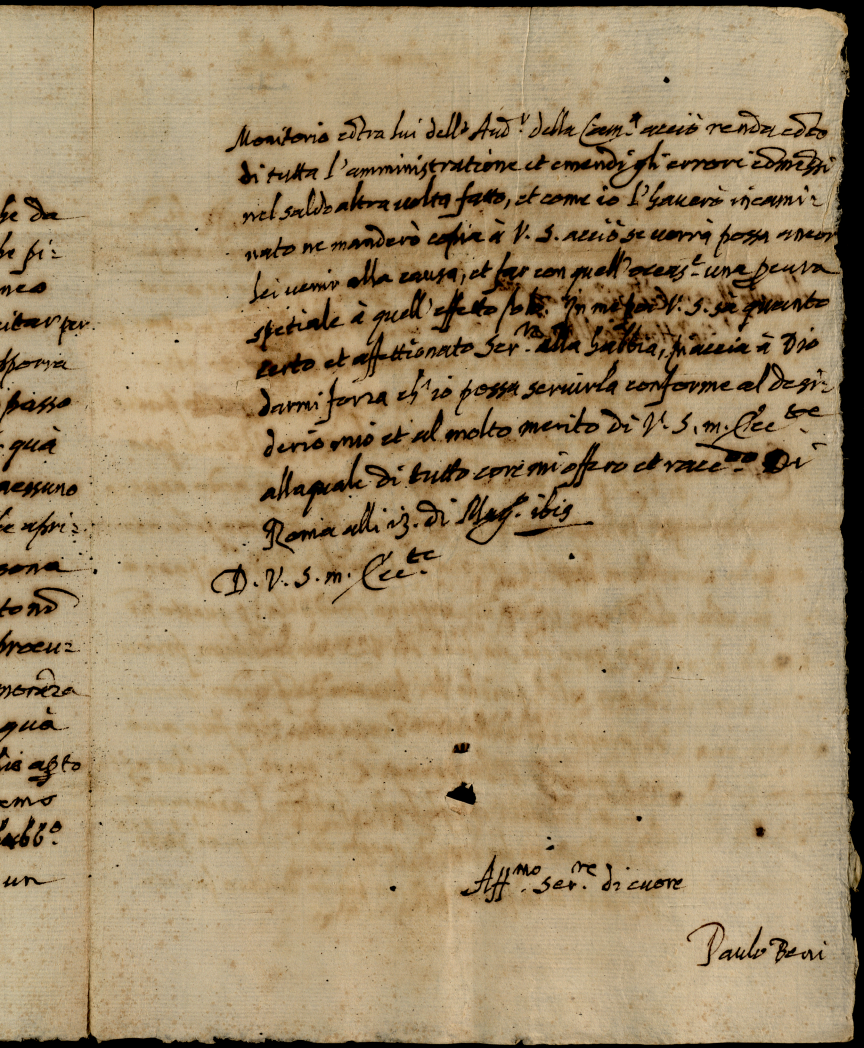 he da
he pi:
neo
citar per
sporra
passo
quà
nessuno
he apri:
sona
to nō
procu:
moreza
quà
emo
abb.º
un
Monitorio cōtra lui dell'Aud.r della Cam.a acciò renda cōto
di tutta l'amministratione et emendi gli errori cōmessi
nel saldo altra volta fatto, et come io l'haverò incami:
nato ne manderò copia à V. S. acciò se vorrà possa ancor
lei venir alla causa, et far con quell'occas.e una pcura
spetiale à quell'effetto solo. In me poi V. S. sà quanto
certo et affettionato ser.re alla habbia, piaccia à Dio
darmi forza ch'io possa servirla conforme al desi:
derio mio et al molto merito di V. S. m. Ecc.te
alla quale di tutto core mi offero et racc.do Di
Roma alli 13. di Mag.º 1619
D. V. S. m. Ecc.te
Aff.mo ser.re di cuore
Paulo Beni